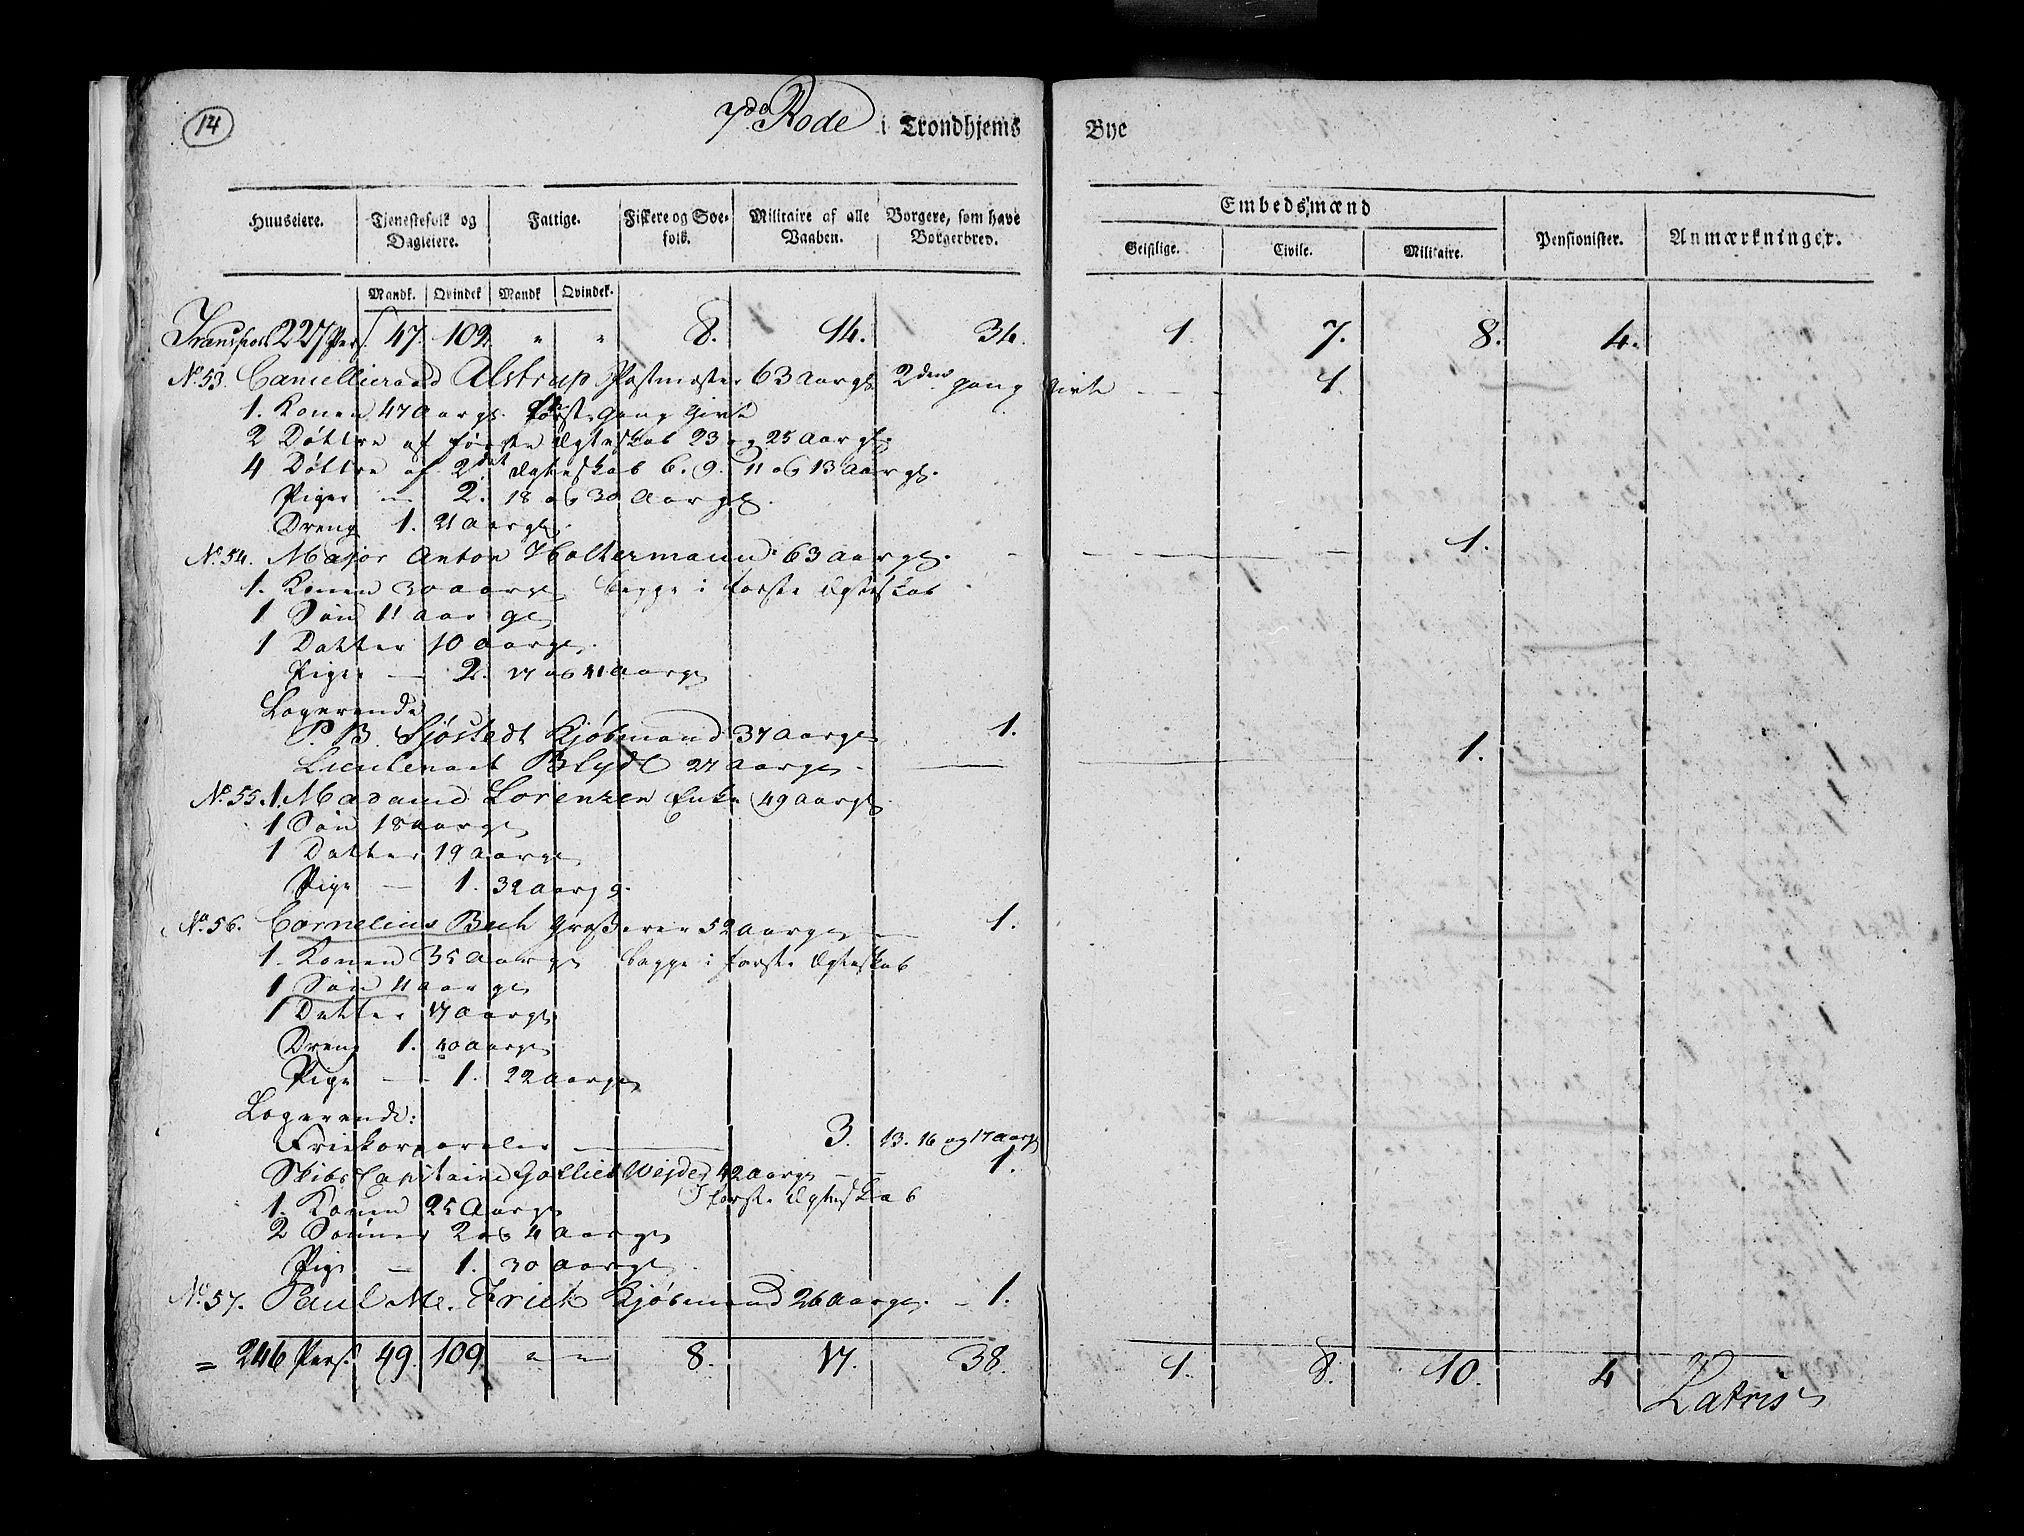 14
7de Rode i Trondhjems Bye
Huuseiere. Tjenestefolk og Dagleiere. Fattige. Fiskere og Søefolk. Militaire af alle Vaaben. Borgere, som have Borgerbrev. Embedsmænd Pensionister. Anmærkninger.
Geistlige. Civile. Militaire.
Mandk. Qvindek Mandk Qvindek.
Transport 227 Pers. 47. 102. " " 8. 14. 34. 1. 7. 8. 4.
No. 53. Cancellieraad Alstrup Postmester 63 Aar gl. 2den gang givte - - - 1.
1. Konen 47 Aar gl. første gang givt
2 Døttre af første Ægteskab 23 og 25 Aar gl.
4 Døttre af 2det Ægteskab 6. 9. 11 og 13 Aar gl.
Piger — 2. 18 og 30 Aar gl.
Dreng 1. 21 Aar gl.
No. 54. Major Anton Holtermann 63 Aar gl. - — — 1.
1. Konen 30 Aar gl. begge i første Ægteskab
1 Søn 11 Aar gl
1 Datter 10 Aar gl.
Piger — 2. 17 og 41 Aar gl
Logerende
P. B. Sjøstedt Kjøbmand 37 Aar gl 1.
Lieutenant Blydt 27 Aar gl. — — 1.
No. 55. 1. Madame Lorenzen Enke 49 Aar gl.
1 Søn 18 Aar gl
1 Datter 19 Aar gl
Pige — 1. 32 Aar g.
No. 56. Cornelius Bech Grosserer 52 Aar gl — 1.
1. Konen 35 Aar gl begge i første Ægteskab
1 Søn 11 Aar gl
1 Datter 17 Aar gl
Dreng 1. 40 Aar gl
Pige — 1. 22 Aar gl
Logerende:
Friekorporaler — 3. 13. 16 og 17 Aar gl
Skibs Capitaine Gotlieb Wejde 42 Aar gl — 1.
1. Konen 25 Aar gl I første Ægteskab
2 Sønner 2 og 4 Aar gl
Pige — 1. 30 Aar gl.
No. 57. Paul M. Irich Kjøbmand 26 Aar gl. - 1.
= 246 Pers. 49. 109. " " 8. 17. 38. 1. 8. 10. 4
Latris